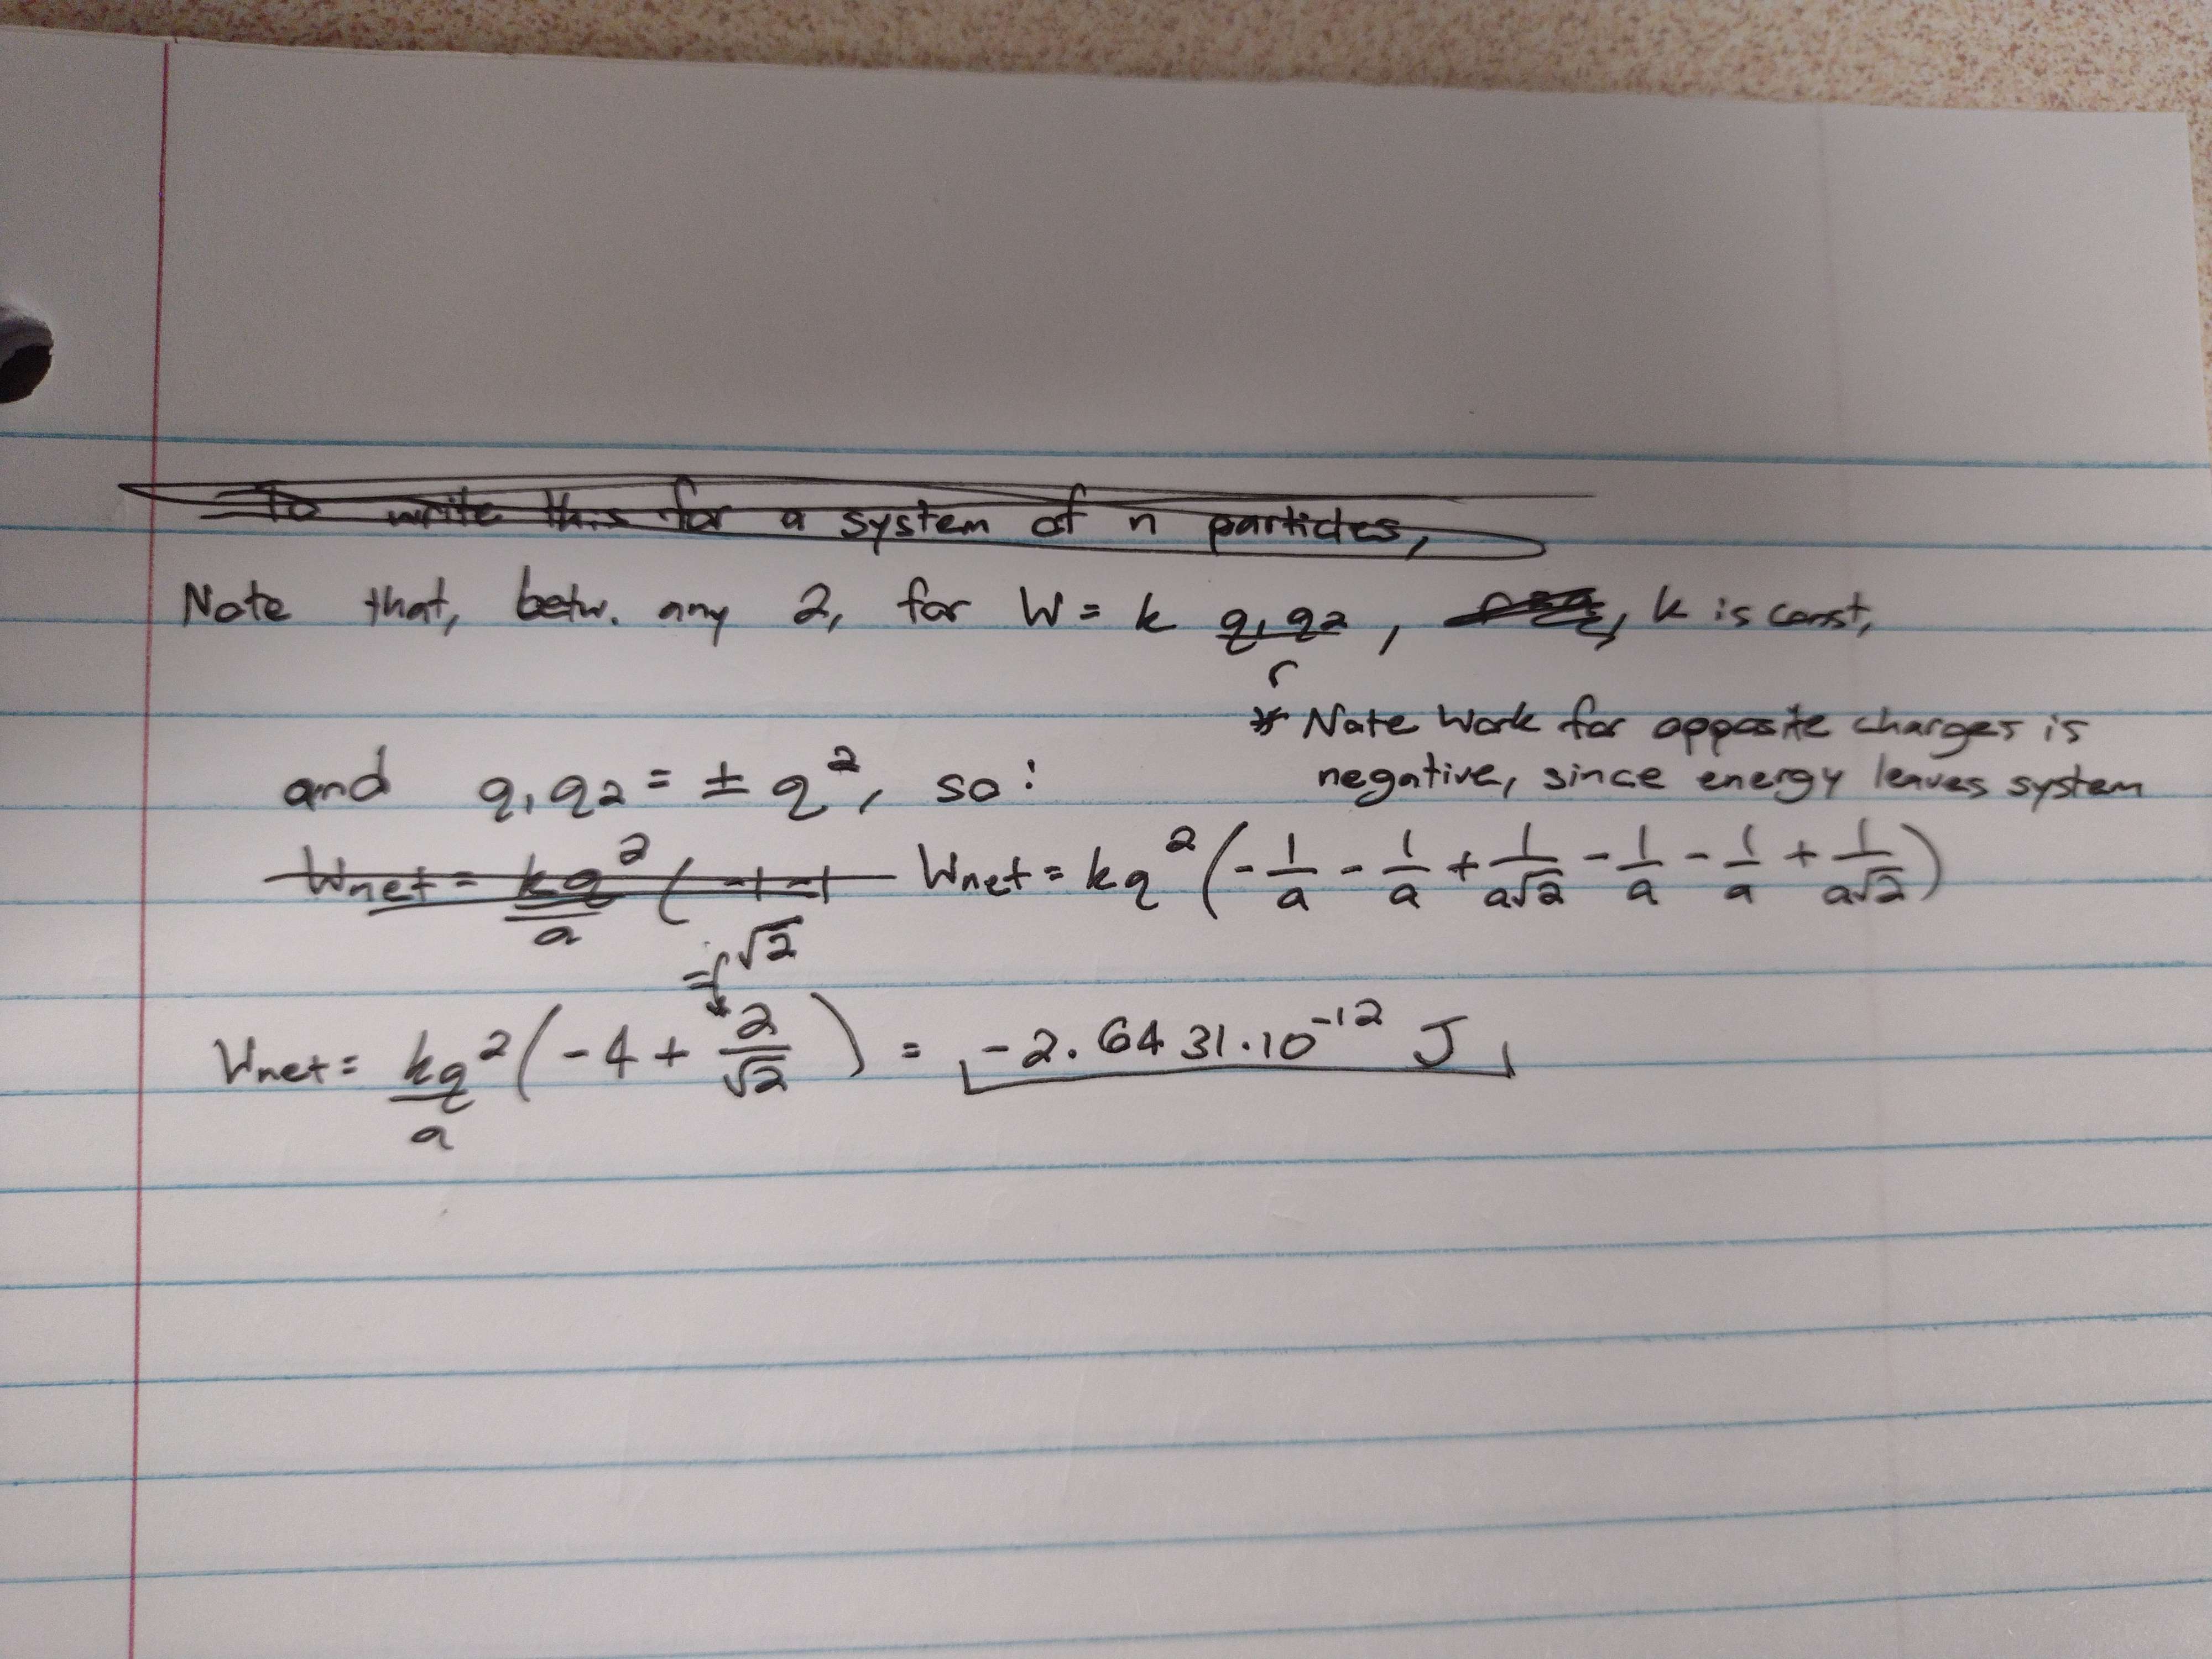 To write this for a system of n particles,
Note that, betw. any 2, for W = k q₁q₂/r, , k is const,
* Note Work for opposite charges is
negative, since energy leaves system
and q₁q₂ = ± q², so:
Wnet = kq²/a ( -1 -1
Wnet = kq² (- 1/a - 1/a + 1/a√2 - 1/a - 1/a + 1/a√2)
= √2
Wnet = kq²/a (-4 + 2/√2) = -2.6431·10⁻¹² J